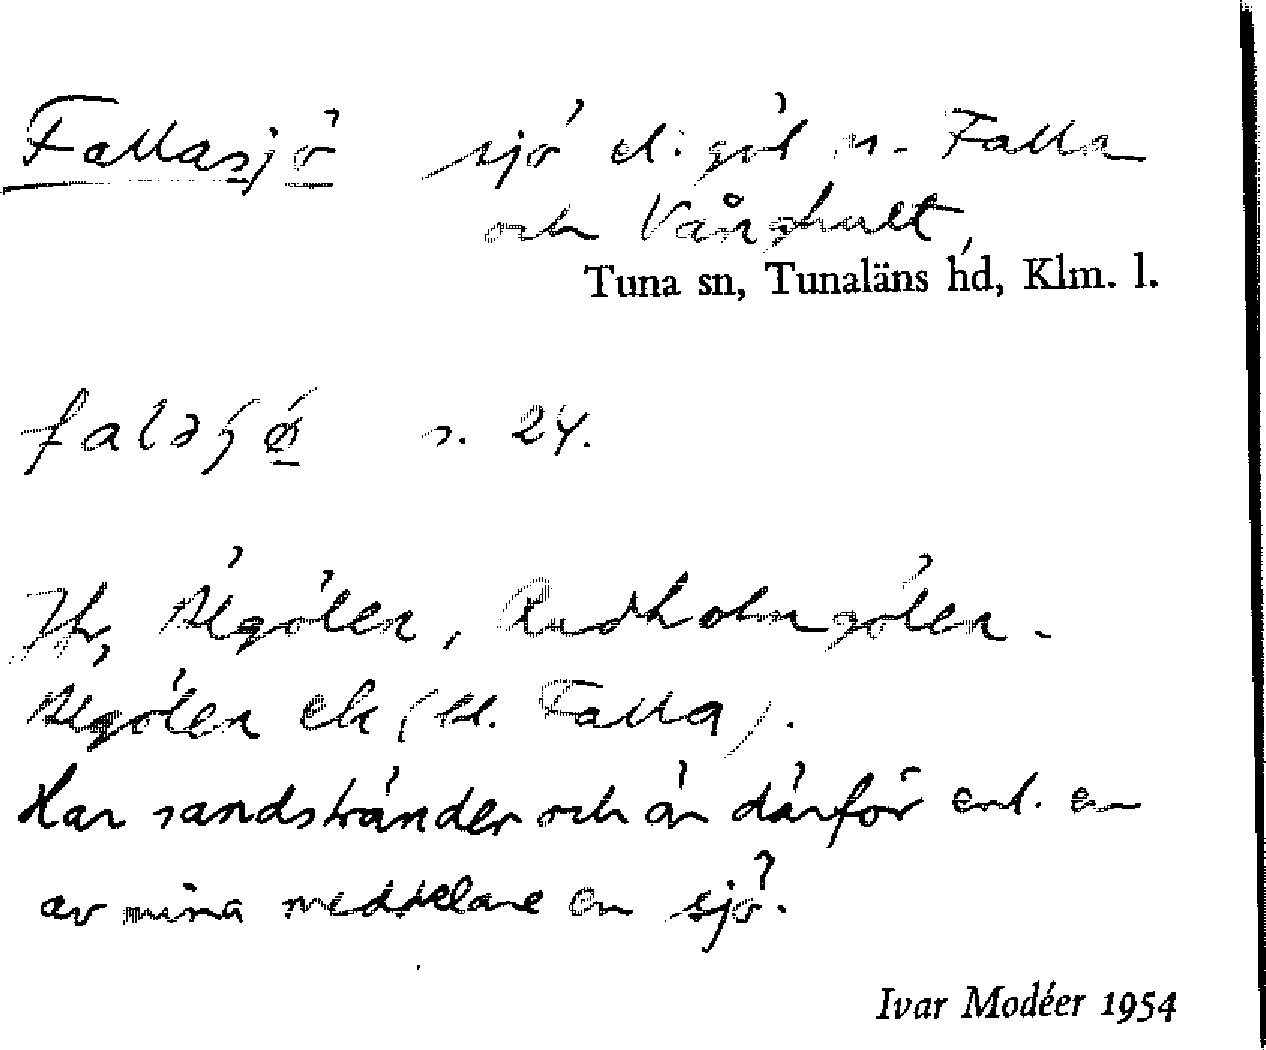 Fallasjö sjö el. göl n. Falla
och Vånghult,
Tuna sn, Tunaläns hd, Klm. l.
s. 24.
Jfr Älgölen, Rudholmgölen.
Älgölen ek (kl. Falla).
Har sandstränder och är därför enl. en
av mina meddelare en sjö.
Ivar Modéer 1954